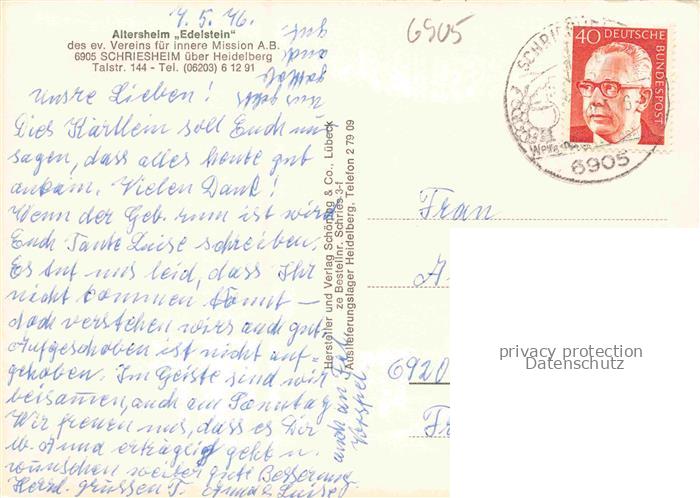 4.5.76.
6905
Altersheim „Edelstein"
des ev. Vereins für innere Mission A.B.
6905 SCHRIESHEIM über Heidelberg
Talstr. 144 - Tel. (06203) 6 12 91
Unsre Lieben!
Dies Kärtlein soll Euch nur
sagen, dass alles heute gut
ankam. Vielen Dank!
Wenn der Geb. rum ist wird
Euch Tante Luise schreiben.
Es tut uns leid, dass Ihr
nicht kommen könnt –
doch verstehen wirs auch gut.
Aufgeschoben ist nicht auf-
gehoben. Im Geiste sind wir
beisammen, auch am Sonntag
Wir freuen uns, dass es Dir
u. A und erträglich geht u.
wünschen weiter gute Besserung
Herzl. grüssen T. Erma & Luise
auch an
Hersteller und Verlag Schöning & Co., Lübeck
ze Bestellnr. Schries 3-f
Auslieferungslager Heidelberg, Telefon 2 79 09
40 DEUTSCHE
BUNDESPOST
SCHRIESHEIM
6905
Frau
A
6920
privacy protection
Datenschutz